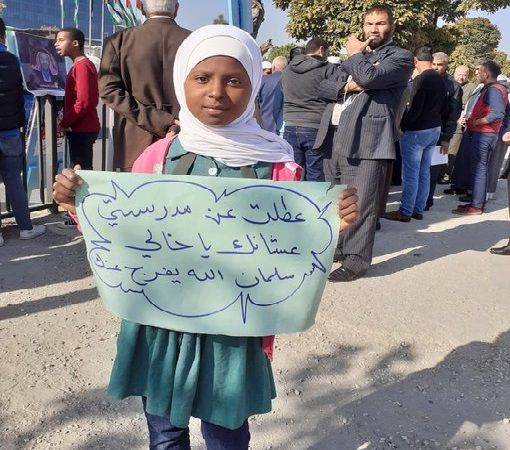 عطلت عن مدرستي
عشانك يا خالي
سلمان الله يفرج عنك